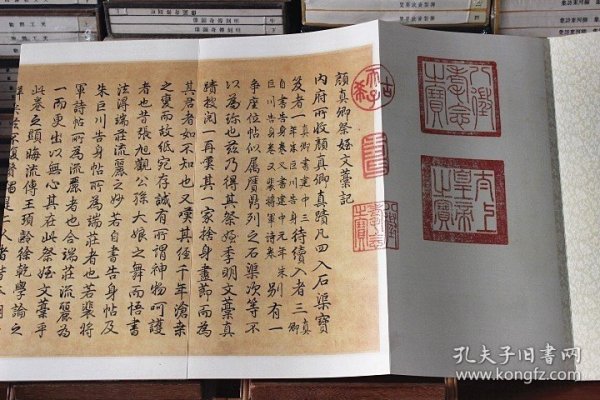 八徵耄念之寶
太上皇帝之寶
古希天子
壽
顏真卿祭姪文藁記
內府所收顏真卿真蹟凡四入石渠寶
笈者一待續入者三
別有一
爭座位帖似屬贋鼎列之石渠次等不
以為珍也茲乃得其祭姪季明文藁真
蹟披閱一再嘆其一家捨身盡節而為
其君者如不知也又嘆其徑千年滄桑
之變而故紙宛存誠有所謂神物呵護
者也昔張旭觀公孫大娘之舞而悟書
法得端莊流麗之妙若自書告身帖及
朱巨川告身帖所為端莊者也若裴將
軍詩帖所為流麗者也合端莊流麗為
一而更出以無心其在此祭姪文藁乎
此卷之顯晦流傳王頊齡徐乾學論之
孔夫子旧书网
www.kongfz.com